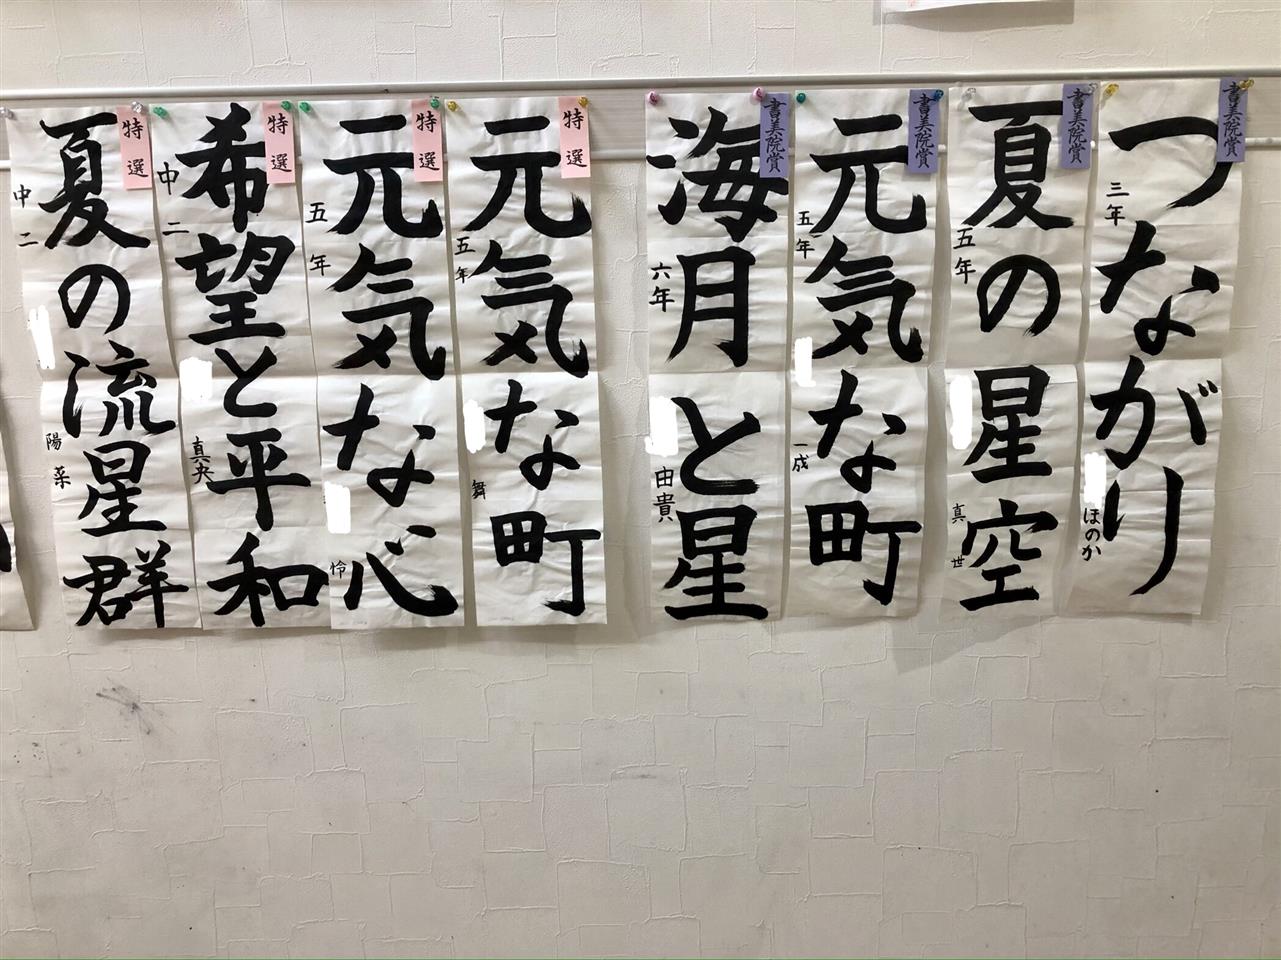 書美院賞
つながり
三年
ほのか
書美院賞
夏の星空
五年
真世
書美院賞
元気な町
五年
一成
書美院賞
海月と星
六年
由貴
特選
元気な町
五年
舞
特選
元気な心
五年
怜
特選
希望と平和
中二
真央
特選
夏の流星群
中二
陽菜